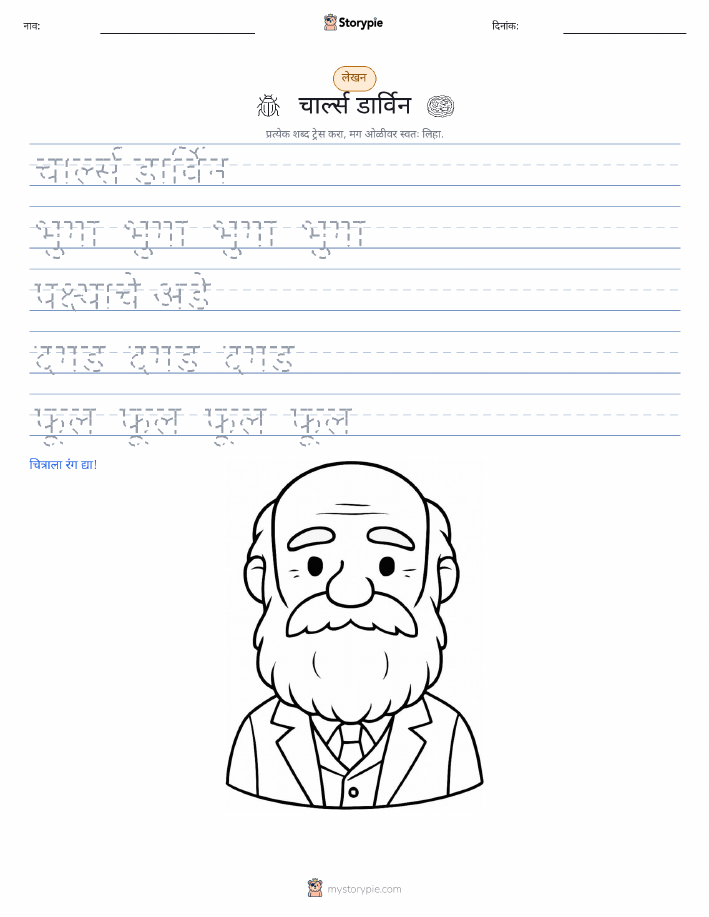 नाव:
Storypie
दिनांक:
लेखन
चार्ल्स डार्विन
प्रत्येक शब्द ट्रेस करा, मग ओळीवर स्वतः लिहा.
चार्ल्स डार्विन
भुंगा भुंगा भुंगा भुंगा
पक्ष्याचे अंडे
दगड दगड दगड
फूल फूल फूल फूल
चित्राला रंग द्या!
mystorypie.com